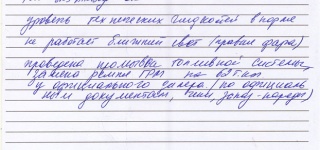 уровень технических жидкостей в норме
не работает ближний свет (правая фара)
проведена промывка топливной системы,
замена ремня ГРМ на 62 т.км
у официального дилера (по официаль
ным документам, чеки, заказ-наряды)